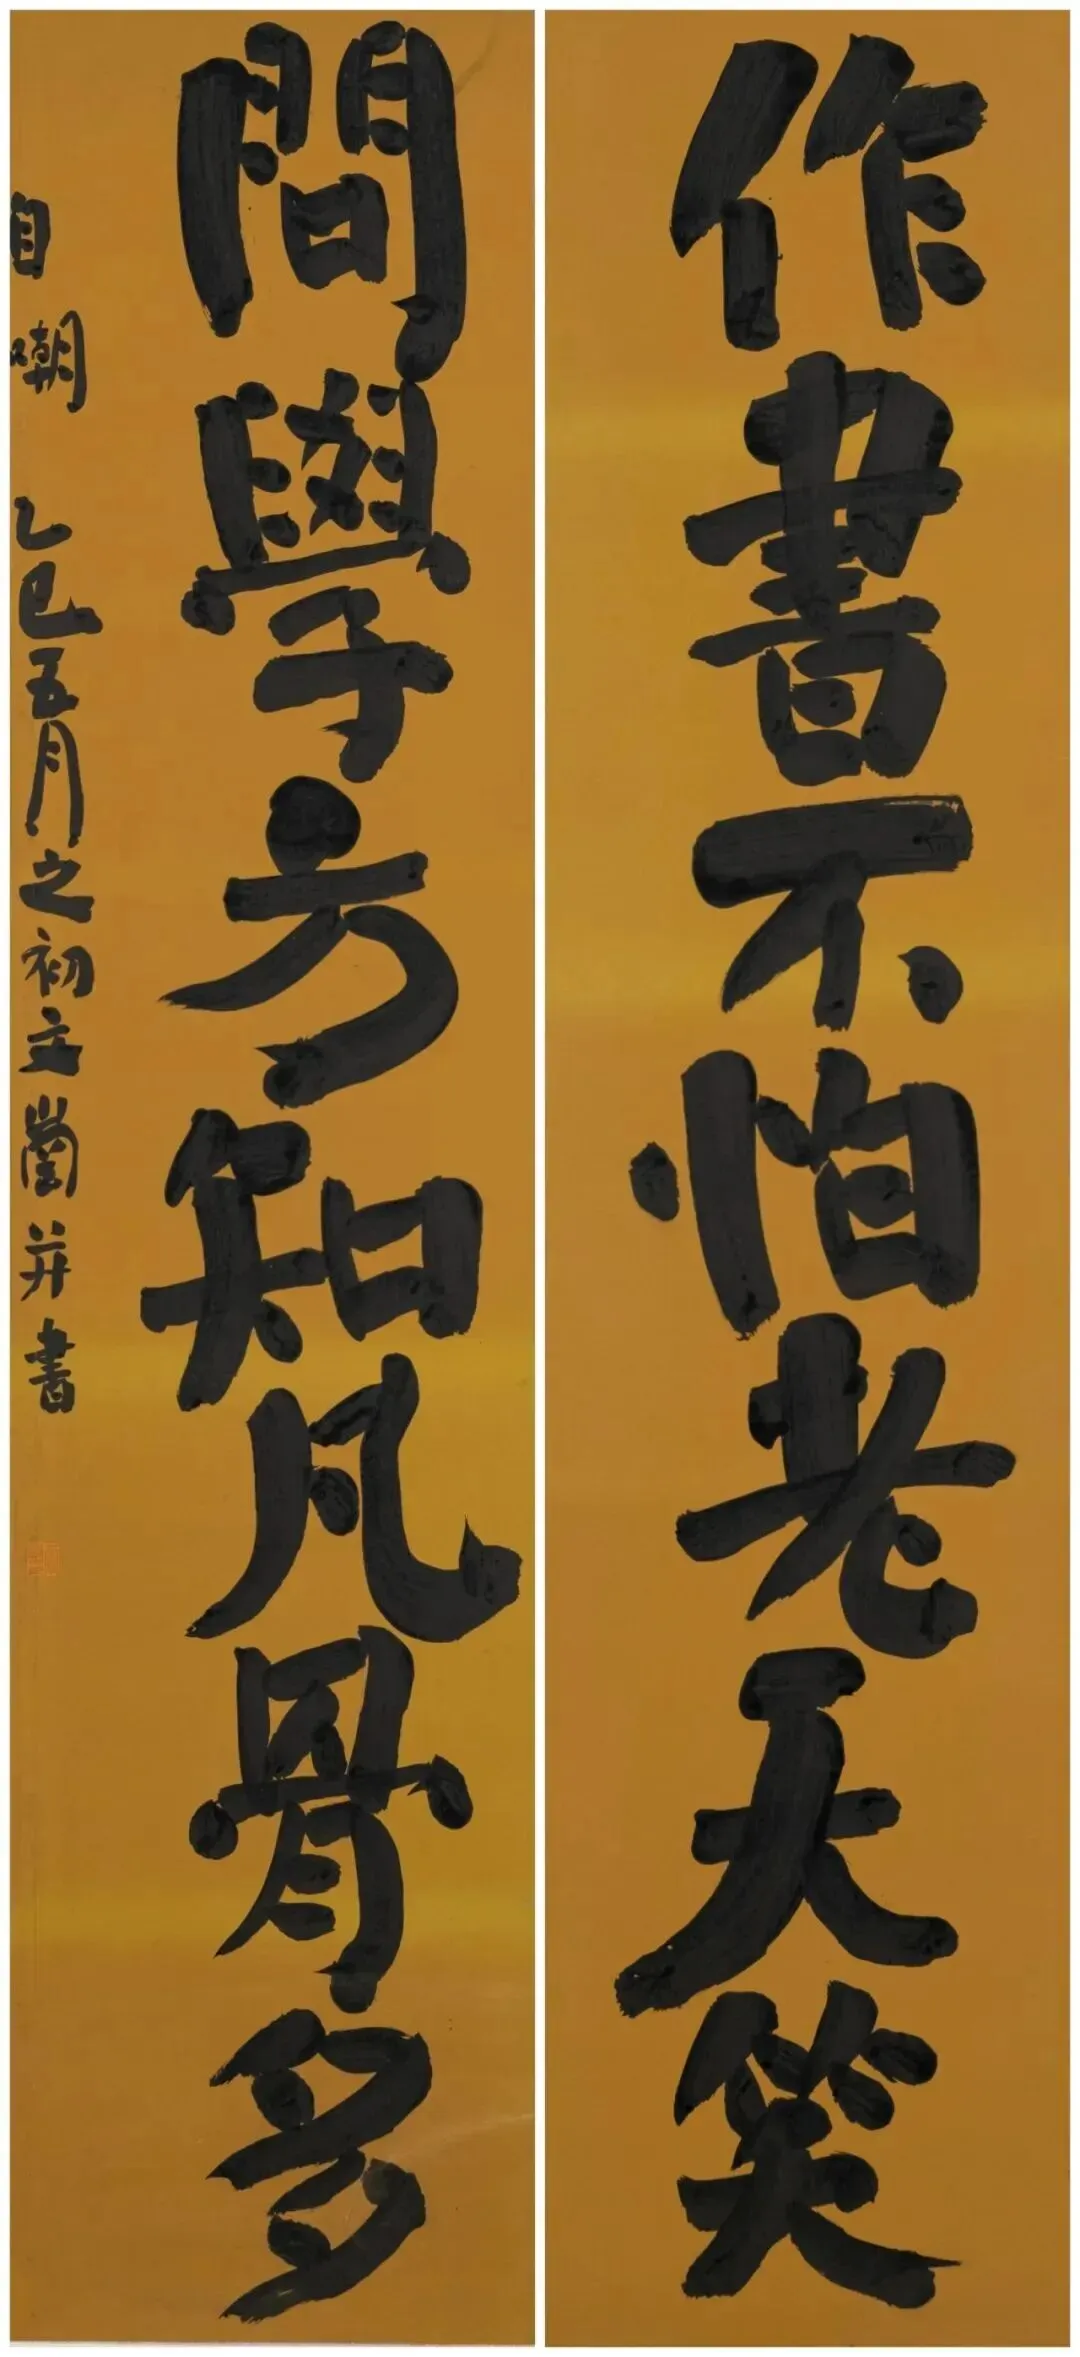 作書不怕老天笑
問學方知凡骨多
自嘲 乙巳五月之初立蘭并書